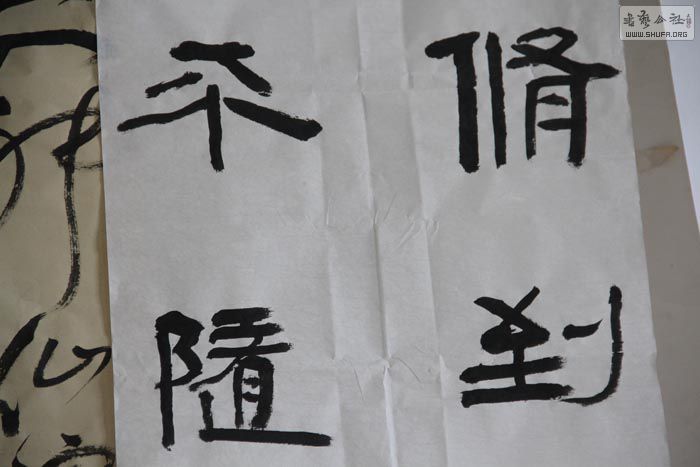 脩到
隨
神仙
書藝公社
WWW.SHUFA.ORG